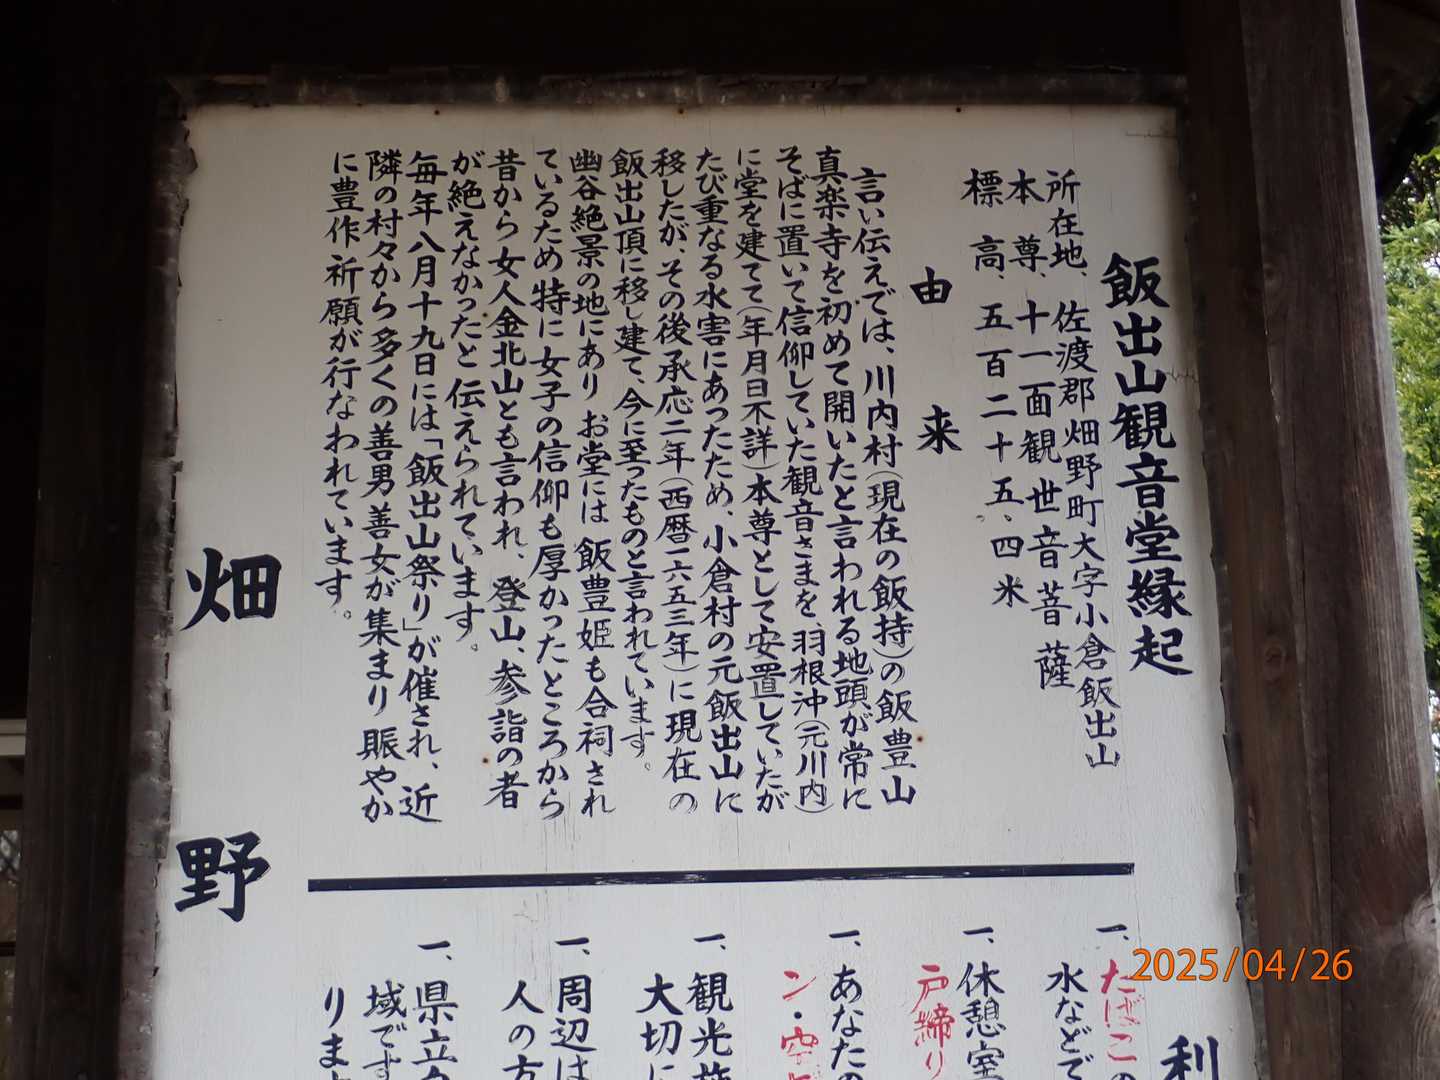 飯出山観音堂縁起
所在地、佐渡郡畑野町大字小倉飯出山
本尊、十一面観世音菩薩
標高、五百二十五、四米
由来
言い伝えでは、川内村(現在の飯持)の飯豊山
真楽寺を初めて開いたと言われる地頭が常に
そばに置いて信仰していた観音さまを、羽根沖(元川内)
に堂を建てて(年月日不詳)本尊として安置していたが
たび重なる水害にあったため、小倉村の元飯出山に
移したが、その後承応二年(西暦一六五三年)に現在の
飯出山頂に移し建て、今に至ったものと言われています。
幽谷絶景の地にあり お堂には飯豊姫も合祠され
ているため特に女子の信仰も厚かったところから
昔から女人金北山とも言われ、登山、参詣の者
が絶えなかったと伝えられています。
毎年八月十九日には「飯出山祭り」が催され、近
隣の村々から多くの善男善女が集まり賑やか
に豊作祈願が行なわれています。
畑野
利
一、たばこの
水などで
一、休憩室
戸締り
一、あなたの
ン・空
一、観光施
大切に
一、周辺は
人の方
一、県立
域です
りま
2025/04/26